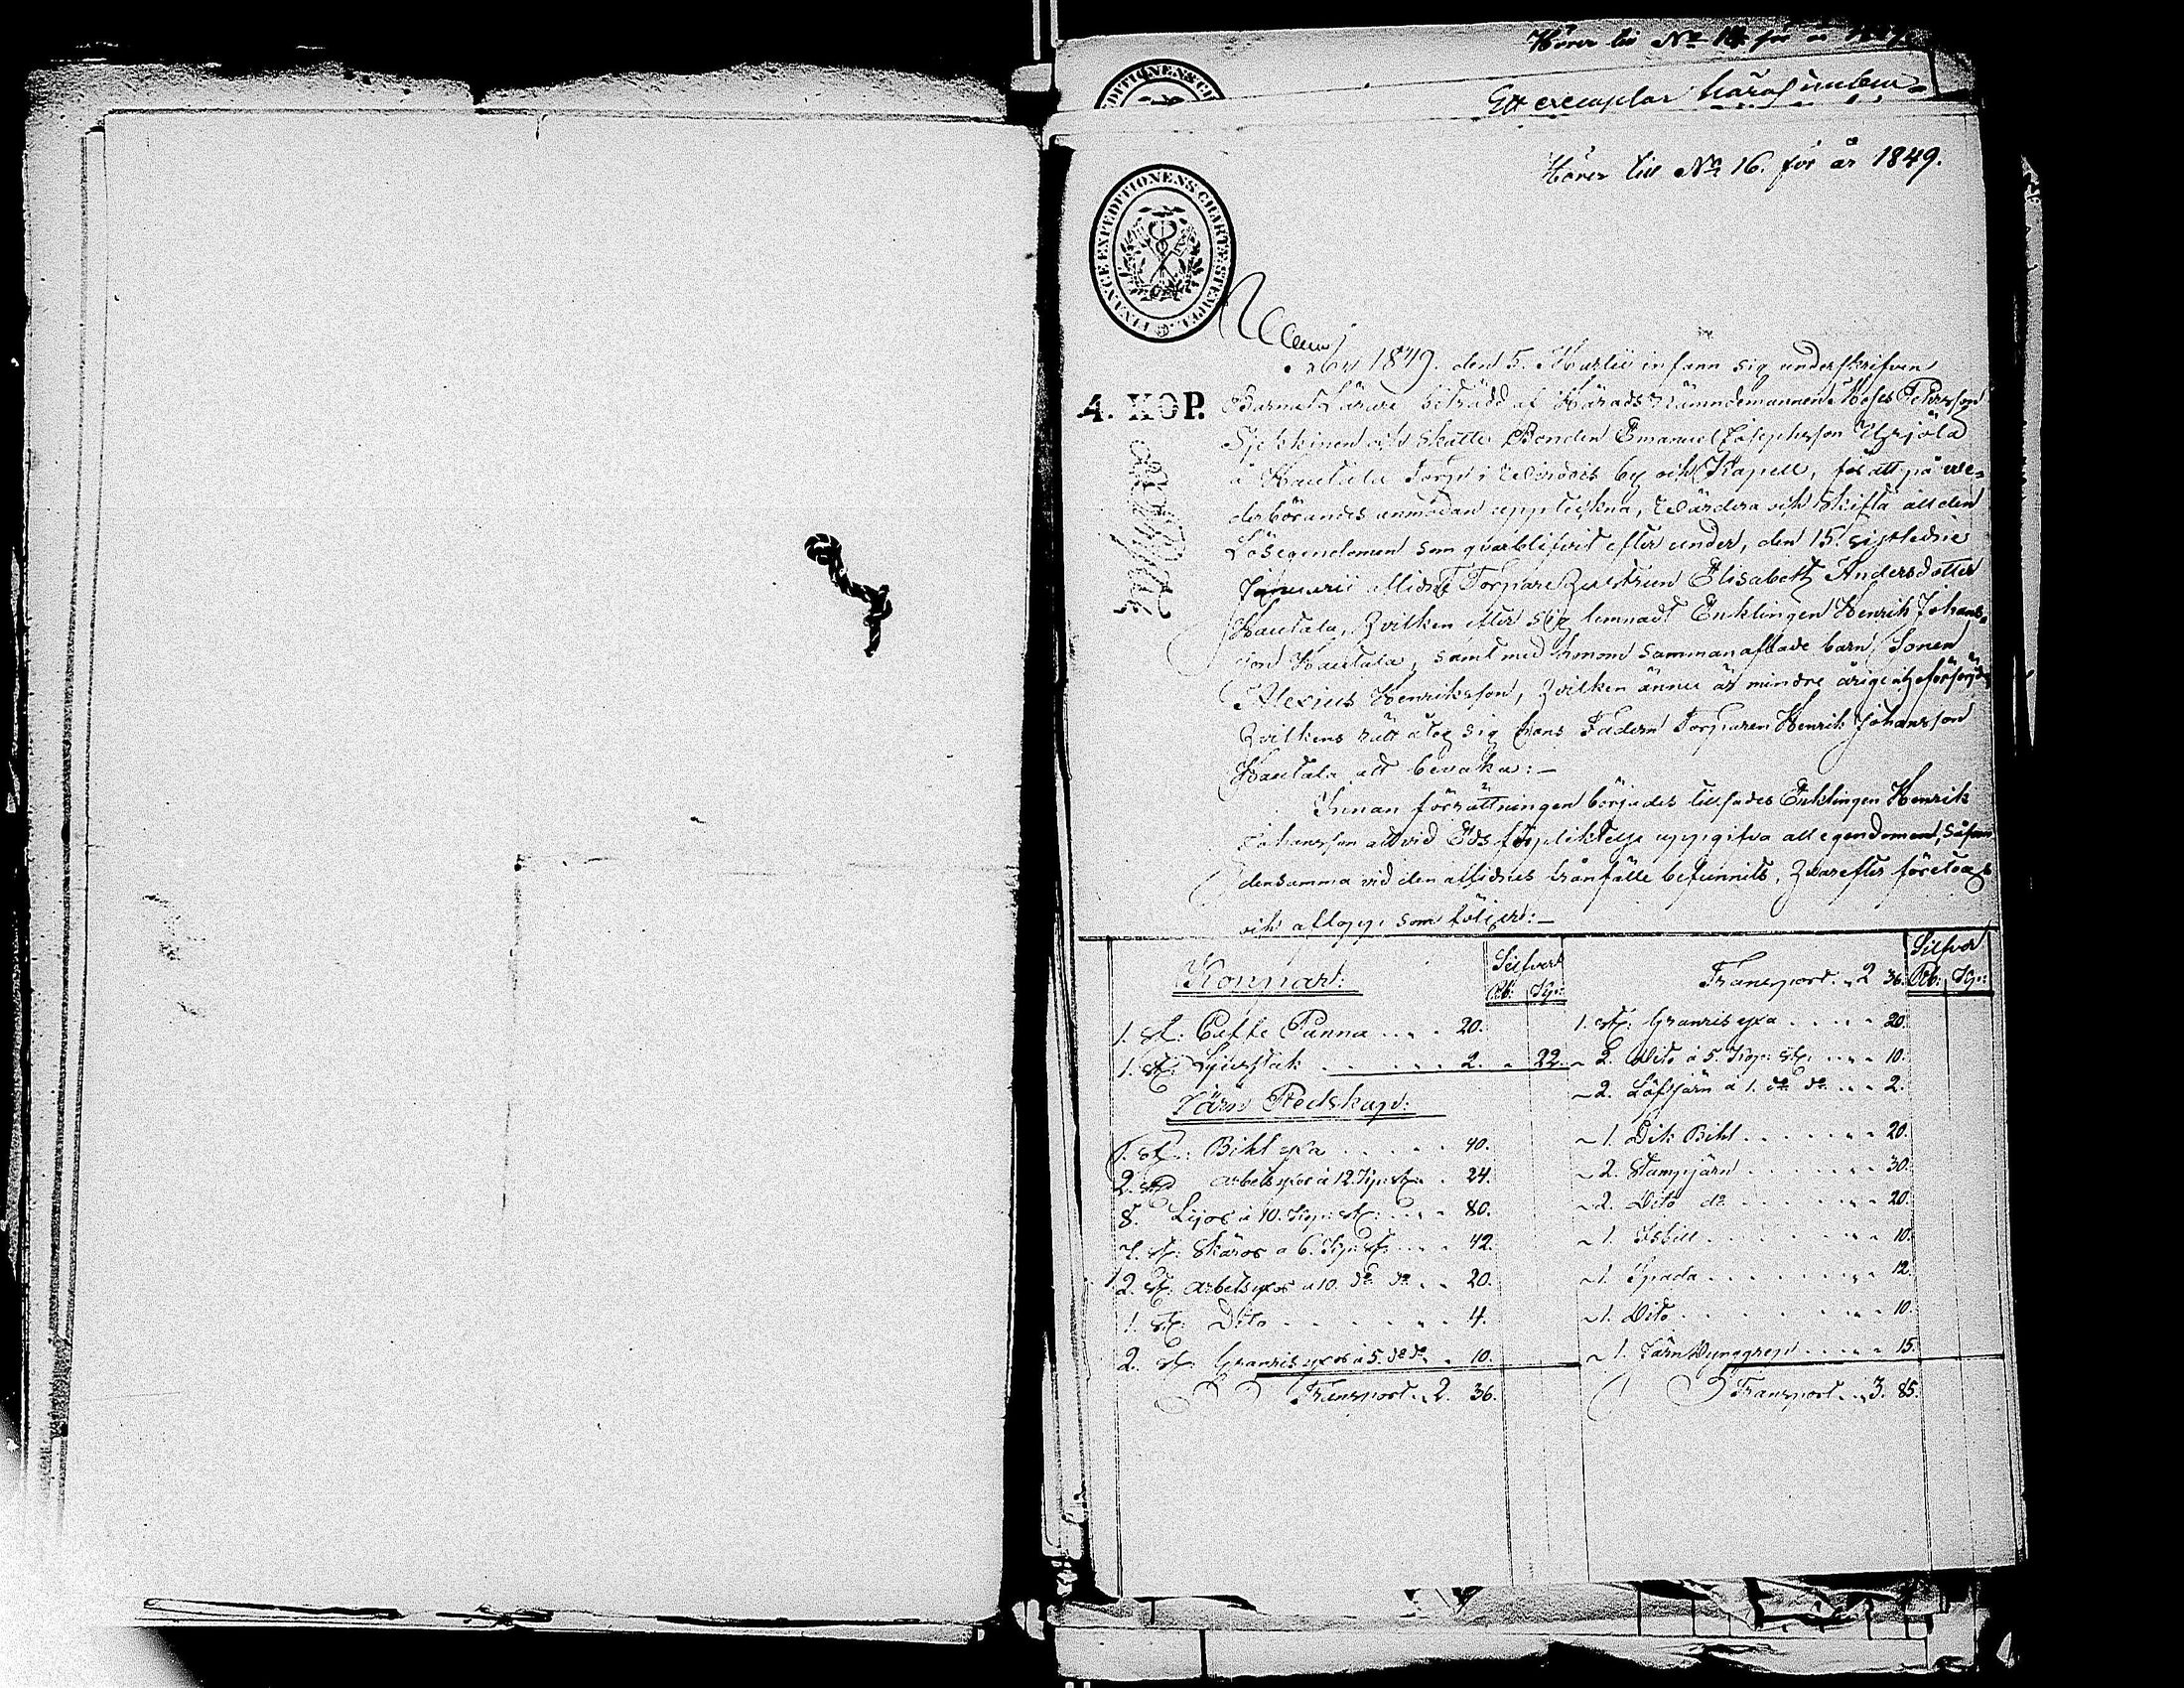 Hörer till No 16. för år 1849.
FINANCE EXPEDITIONENS CHARTÆ STEMPEL.
4. KOP.
1849. den 5. Martii infann sig underskrifven
Barna Lärare biträdd af Härads Nämndemannen Moses Petersson
och Skatte Bonden Emanuel Josephsson Yrjölä
å Hautala Torp i by och Kapell, för att på ve-
derbörandes anmodan uppteckna, Värdera och Skifta all den
Lösegendomen som qvarblifvit efter under, den 15. sistledne
Januarii aflidne Torpare Hustrun Elisabeth Andersdotter
Hautala, Hvilken efter sig lemnadt Enklingen Henrik Johans-
son Hautala, samt med honom sammanaflade barn, Sonen
Alexius Henriksson, Hvilken ännu är mindre årig
Hvilkens rätt åtog sig hans Fadern Torparen Henrik Johansson
Hautala att bevaka:—
Innan förrättningen börjades tillsades Enklingen Henrik
Johansson att vid Eds förpliktelse uppgifva all egendomen, såsom
densamma vid den aflidnes frånfälle befunnits, Hvarefter företogs
och aflopp som följer:—
Koppar:
Silfver
Rb: Kop:
1. st: Caffe Panna . . . . 20.
1. st: Ljusstak . . . . . . 2. " 22.
Järn Redskap:
1. st: Bihl yxa . . . . . 40.
2. arbets yxor à 12 Kop: st: . 24.
8. Lijor à 10. Kop: st: . . . 80.
7. st: Skäror a 6. Kop: st: . . . 42.
2. st: arbets yxor a 10. do do . . 20.
1. st: Dito . . . . . . . 4.
2. st: Granris yxor à 5. do do . . 10.
Transport . 2. 36.
Transport . 2 36.
Silfver
Rb: Kop:
1. st: Granris yxa . . . . . 20.
2. Dito à 5. Kop: st: . . . . 10.
2. Löfjärn à 1. do do . . . 2.
1. Dik Bihl . . . . . . . 20.
2. Stampjärn . . . . . . 30.
2. Dito do . . . . . . . 20.
1. Isbill . . . . . . . . 10.
1. Spada . . . . . . . . 12.
1. Dito . . . . . . . . 10.
1. Järn Dynggrep . . . . . 15.
Transport . . 3. 85.